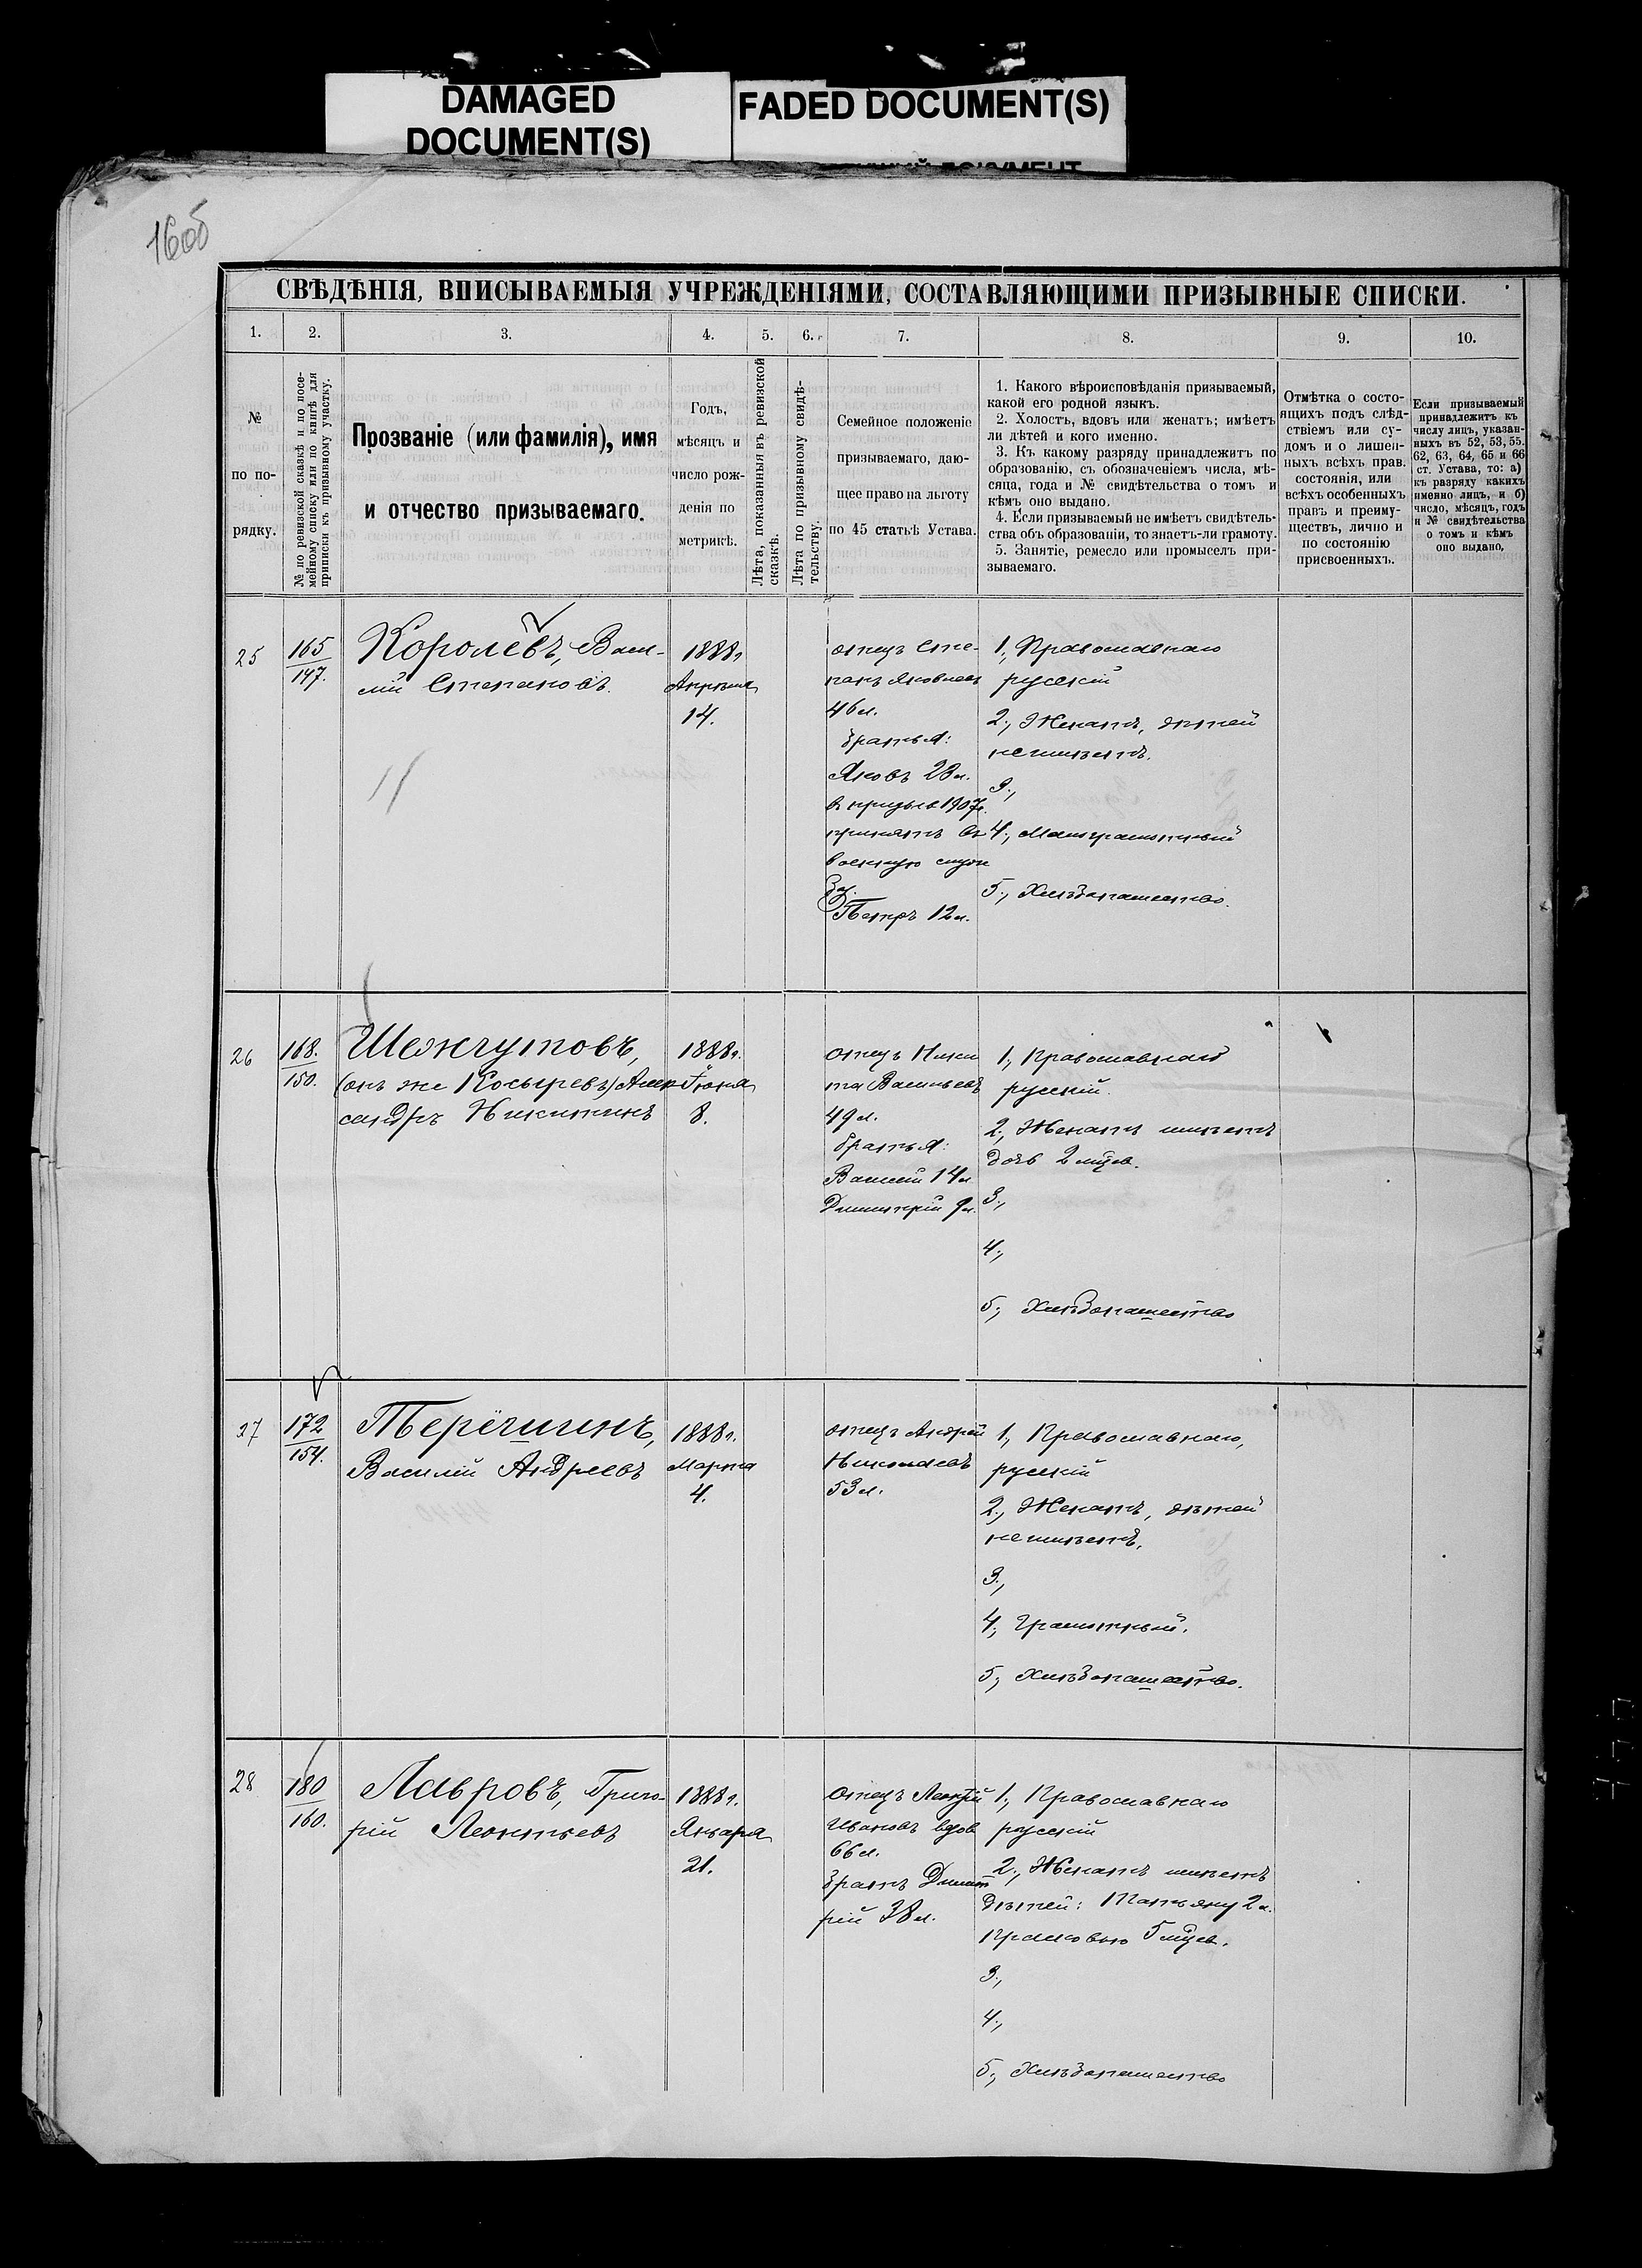 DAMAGED
DOCUMENT(S)
FADED DOCUMENT(S)
СВѢДѢНІЯ, ВПИСЫВАЕМЫЯ УЧРЕЖДЕНІЯМИ, СОСТАВЛЯЮЩИМИ ПРИЗЫВНЫЕ СПИСКИ.
1.
2.
3.
4.
5.
6.
7.
8.
9.
10.
№
по по-
рядку.
№ по ревизской сказкѣ и по посе-
мейному списку или по книгѣ для
приписки къ призывному участку.
Прозваніе (или фамилія), имя
и отчество призываемаго.
Годъ,
мѣсяцъ и
число рож-
денія по
метрикѣ.
Лѣта, показанныя въ ревизской
сказкѣ.
Лѣта по призывному свидѣ-
тельству.
Семейное положеніе
призываемаго, даю-
щее право на льготу
по 45 статьѣ Устава.
1. Какого вѣроисповѣданія призываемый,
какой его родной языкъ.
2. Холостъ, вдовъ или женатъ; имѣетъ
ли дѣтей и кого именно.
3. Къ какому разряду принадлежитъ по
образованію, съ обозначеніемъ числа, мѣ-
сяца, года и № свидѣтельства о томъ и
кѣмъ оно выдано.
4. Если призываемый не имѣетъ свидѣтель-
ства объ образованіи, то знаетъ-ли грамоту.
5. Занятіе, ремесло или промыселъ при-
зываемаго.
Отмѣтка о состо-
ящихъ подъ слѣд-
ствіемъ или су-
домъ и о лишен-
ныхъ всѣхъ прав.
состоянія, или
всѣхъ особенныхъ
правъ и преиму-
ществъ, лично и
по состоянію
присвоенныхъ.
Если призываемый
принадлежитъ къ
числу лицъ, указан-
ныхъ въ 52, 53, 55.
62, 63, 64, 65 и 66
ст. Устава, то: а)
къ разряду какихъ
именно лицъ, и б)
число, мѣсяцъ, годъ
и № свидѣтельства
о томъ и кѣмъ
оно выдано.
25
165
147.
Королёвъ, Васи-
лій Степановъ.
1888г
Апрѣля
14.
отецъ Сте-
панъ Яковлевъ
46л.
братья:
Яковъ 23л.
въ призывъ 1907г.
принятъ въ
военную служ
бу.
Петръ 12л.
1., Православнаго
русскій
2., Женатъ, дѣтей
не имѣетъ.
3.,
4., Малограмотный
5., Хлѣбопашество.
26
168.
150.
Шемчутовъ,
(онъ же Косыревъ) Алек-
сандръ Никитинъ
1888г.
Іюня
8.
отецъ Ники
та Васильевъ
49л.
братья:
Василій 14л
Димитрій 9л.
1., Православнаго
русскій.
2., Женатъ имѣетъ
дочь 2 мѣсяц.
3.,
4.,
5., Хлѣбопашество
27
172
154.
Терёшинъ,
Василій Андреевъ
1888г.
Марта
4.
отецъ Андрей
Николаевъ
53л.
1., Православнаго,
русскій
2., Женатъ, дѣтей
не имѣетъ.
3.,
4., Грамотный.
5., Хлѣбопашество.
28
180
160.
Лавровъ, Григо-
рій Леонтьевъ
1888г.
Января
21.
отецъ Леонтій
Ивановъ вдов
66л.
братъ Димит
рій 38л.
1., Православнаго
русскій
2., Женатъ имѣетъ
дѣтей: Татьяну 2л.
Прасковью 5 мѣсяц.
3.,
4.,
5., Хлѣбопашество